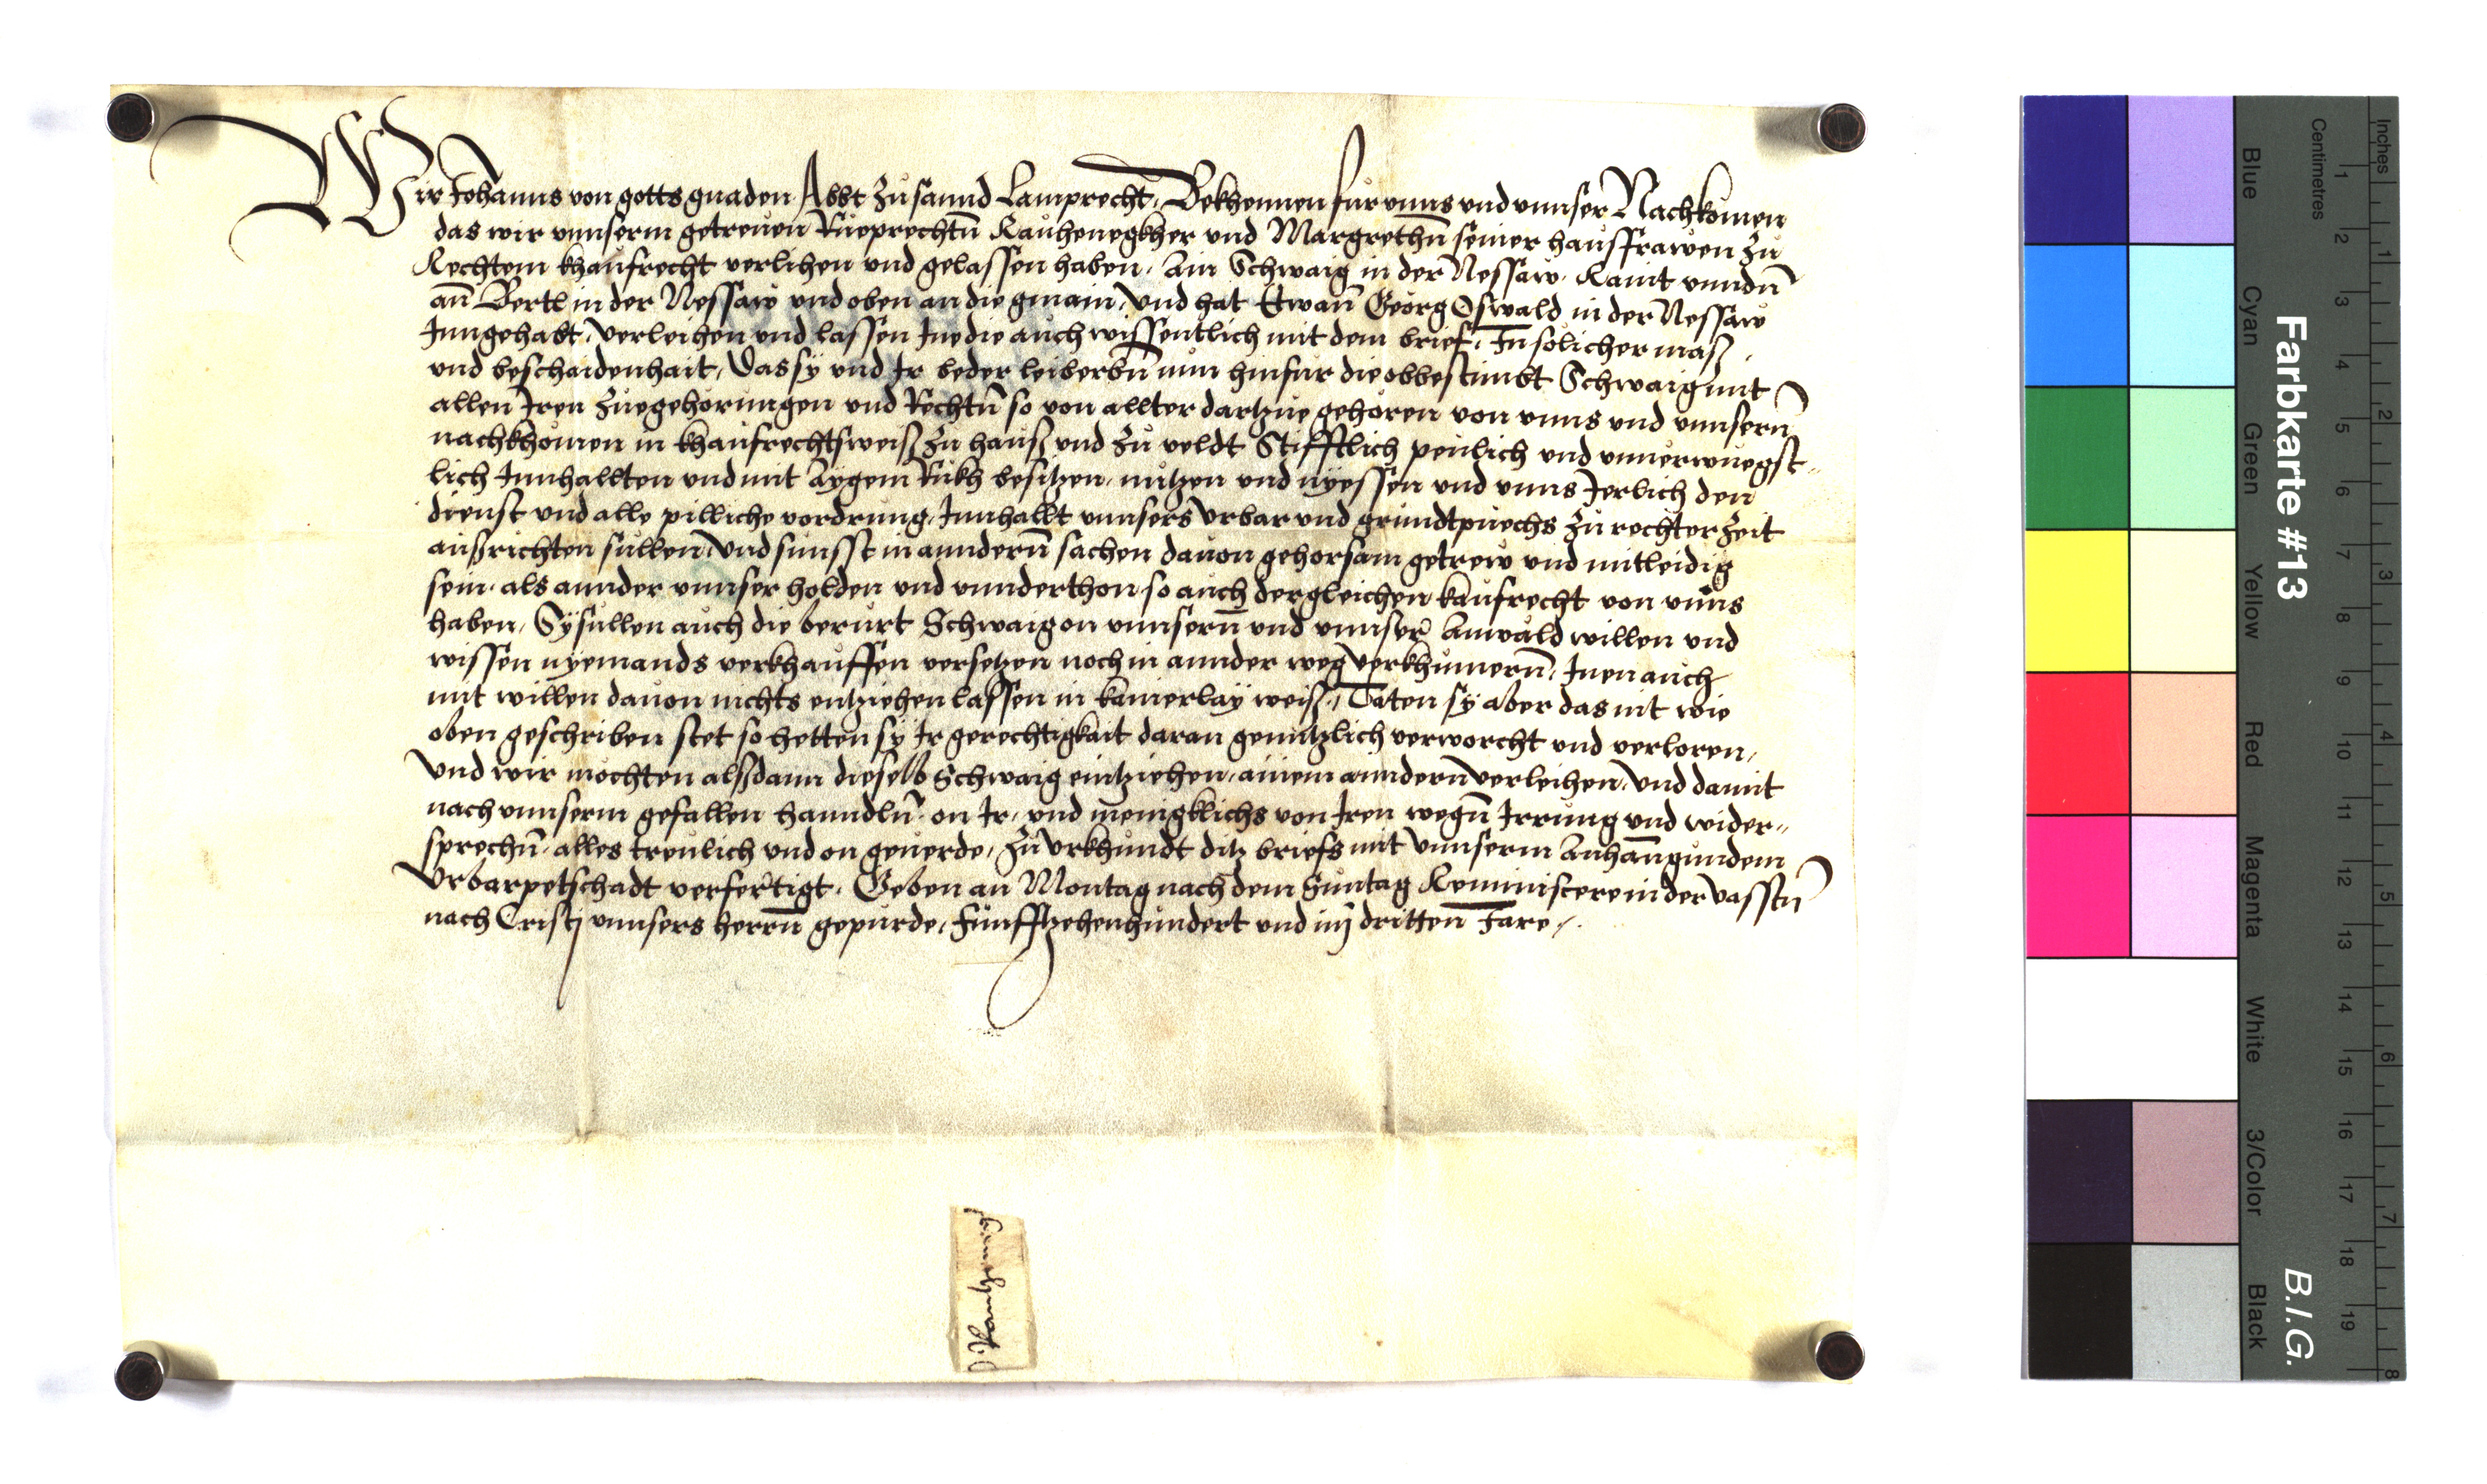 Wir Johanns von gotts gnaden Abbt zu sannd Lamprecht, Bekhennen fur vnns vnd vnnser Nachkomen
das wir vnnserm getreuen Rueprechtn̄ Rauhenegkher vnd Margrethn̄ seiner hausfrawen zu
Rechtem khaufrecht verlihen vnd gelassen haben, Ain Schwaig in der Nessaw, Raint vnndn̄
an̄ Bertl in der Nessaw vnd oben an die gmain, vnd hat Etwan̄ Georg Oswald in der Nessaw
Inngehabt, verleihen vnd lassen Ine die auch wissentlich mit dem brief, In solicher mass
vnd beschaidenhait, Das sy vnd Ir beder leiberbn̄ nun hinfur die obbestimbt Schwaig mit
allen Iren zuegehorungen vnd Rechtn̄ so von allter dartzue gehoren von vnns vnd vnnsern̄
nachkhomen in khaufrechtsweiß zu hauß vnd zu veldt Stifftlich peulich vnd vnuerwuegst-
lich Innhallten vnd mit Aygem Rukh besitzen, nutzen vnd nyessen vnd vnns Jerlich den
dienst vnd alle pilliche vordrung, Innhallt vnnsers vrbar vnd grundtpuechs zu rechter zeit
außrichten sullen, vnd sunsst in anndern̄ sachen dauon gehorsam getrew vnd mitleidig
sein, als annder vnnser holden vnd vnnderthon so auch dergleichen kaufrecht von vnns
haben, Sy sullen auch die berurt Schwaig on vnnsern̄ vnd vnnser Anwald willen vnd
wissen nyemands verkhauffen versetzen noch in annder weg verkhumern̄, Inen auch
mit willen dauon nichts entziehen lassen in kainerlay weiß, Taten sy aber das nit wie
oben geschriben stet so hetten sy Ir gerechtigkait daran genntzlich verworcht vnd verloren,
vnd wir mochten alßdann dieselb Schwaig eintziehen, ainem anndern̄ verleihen, vnd damit
nach vnnserm gefallen hanndln̄, on Ir, vnd menigklichs von Iren wegn̄ Irrung vnd wider-
sprechn̄, alles treulich vnd on geuerde, zu vrkhundt ditz briefs mit vnnserm Anhangundem
vrbarpetschadt verfertigt, Geben an Montag nach dem Suntag Reminiscere in der vasstn̄
nach Cristj vnnsers herrn̄ gepurde, Funfftzehenhundert vnd im dritten Jare,
Farbkarte #13
B.I.G.
Blue Cyan Green Yellow Red Magenta White 3/Color Black
Centimetres 1 2 3 4 5 6 7 8 9 10 11 12 13 14 15 16 17 18 19
Inches 1 2 3 4 5 6 7 8